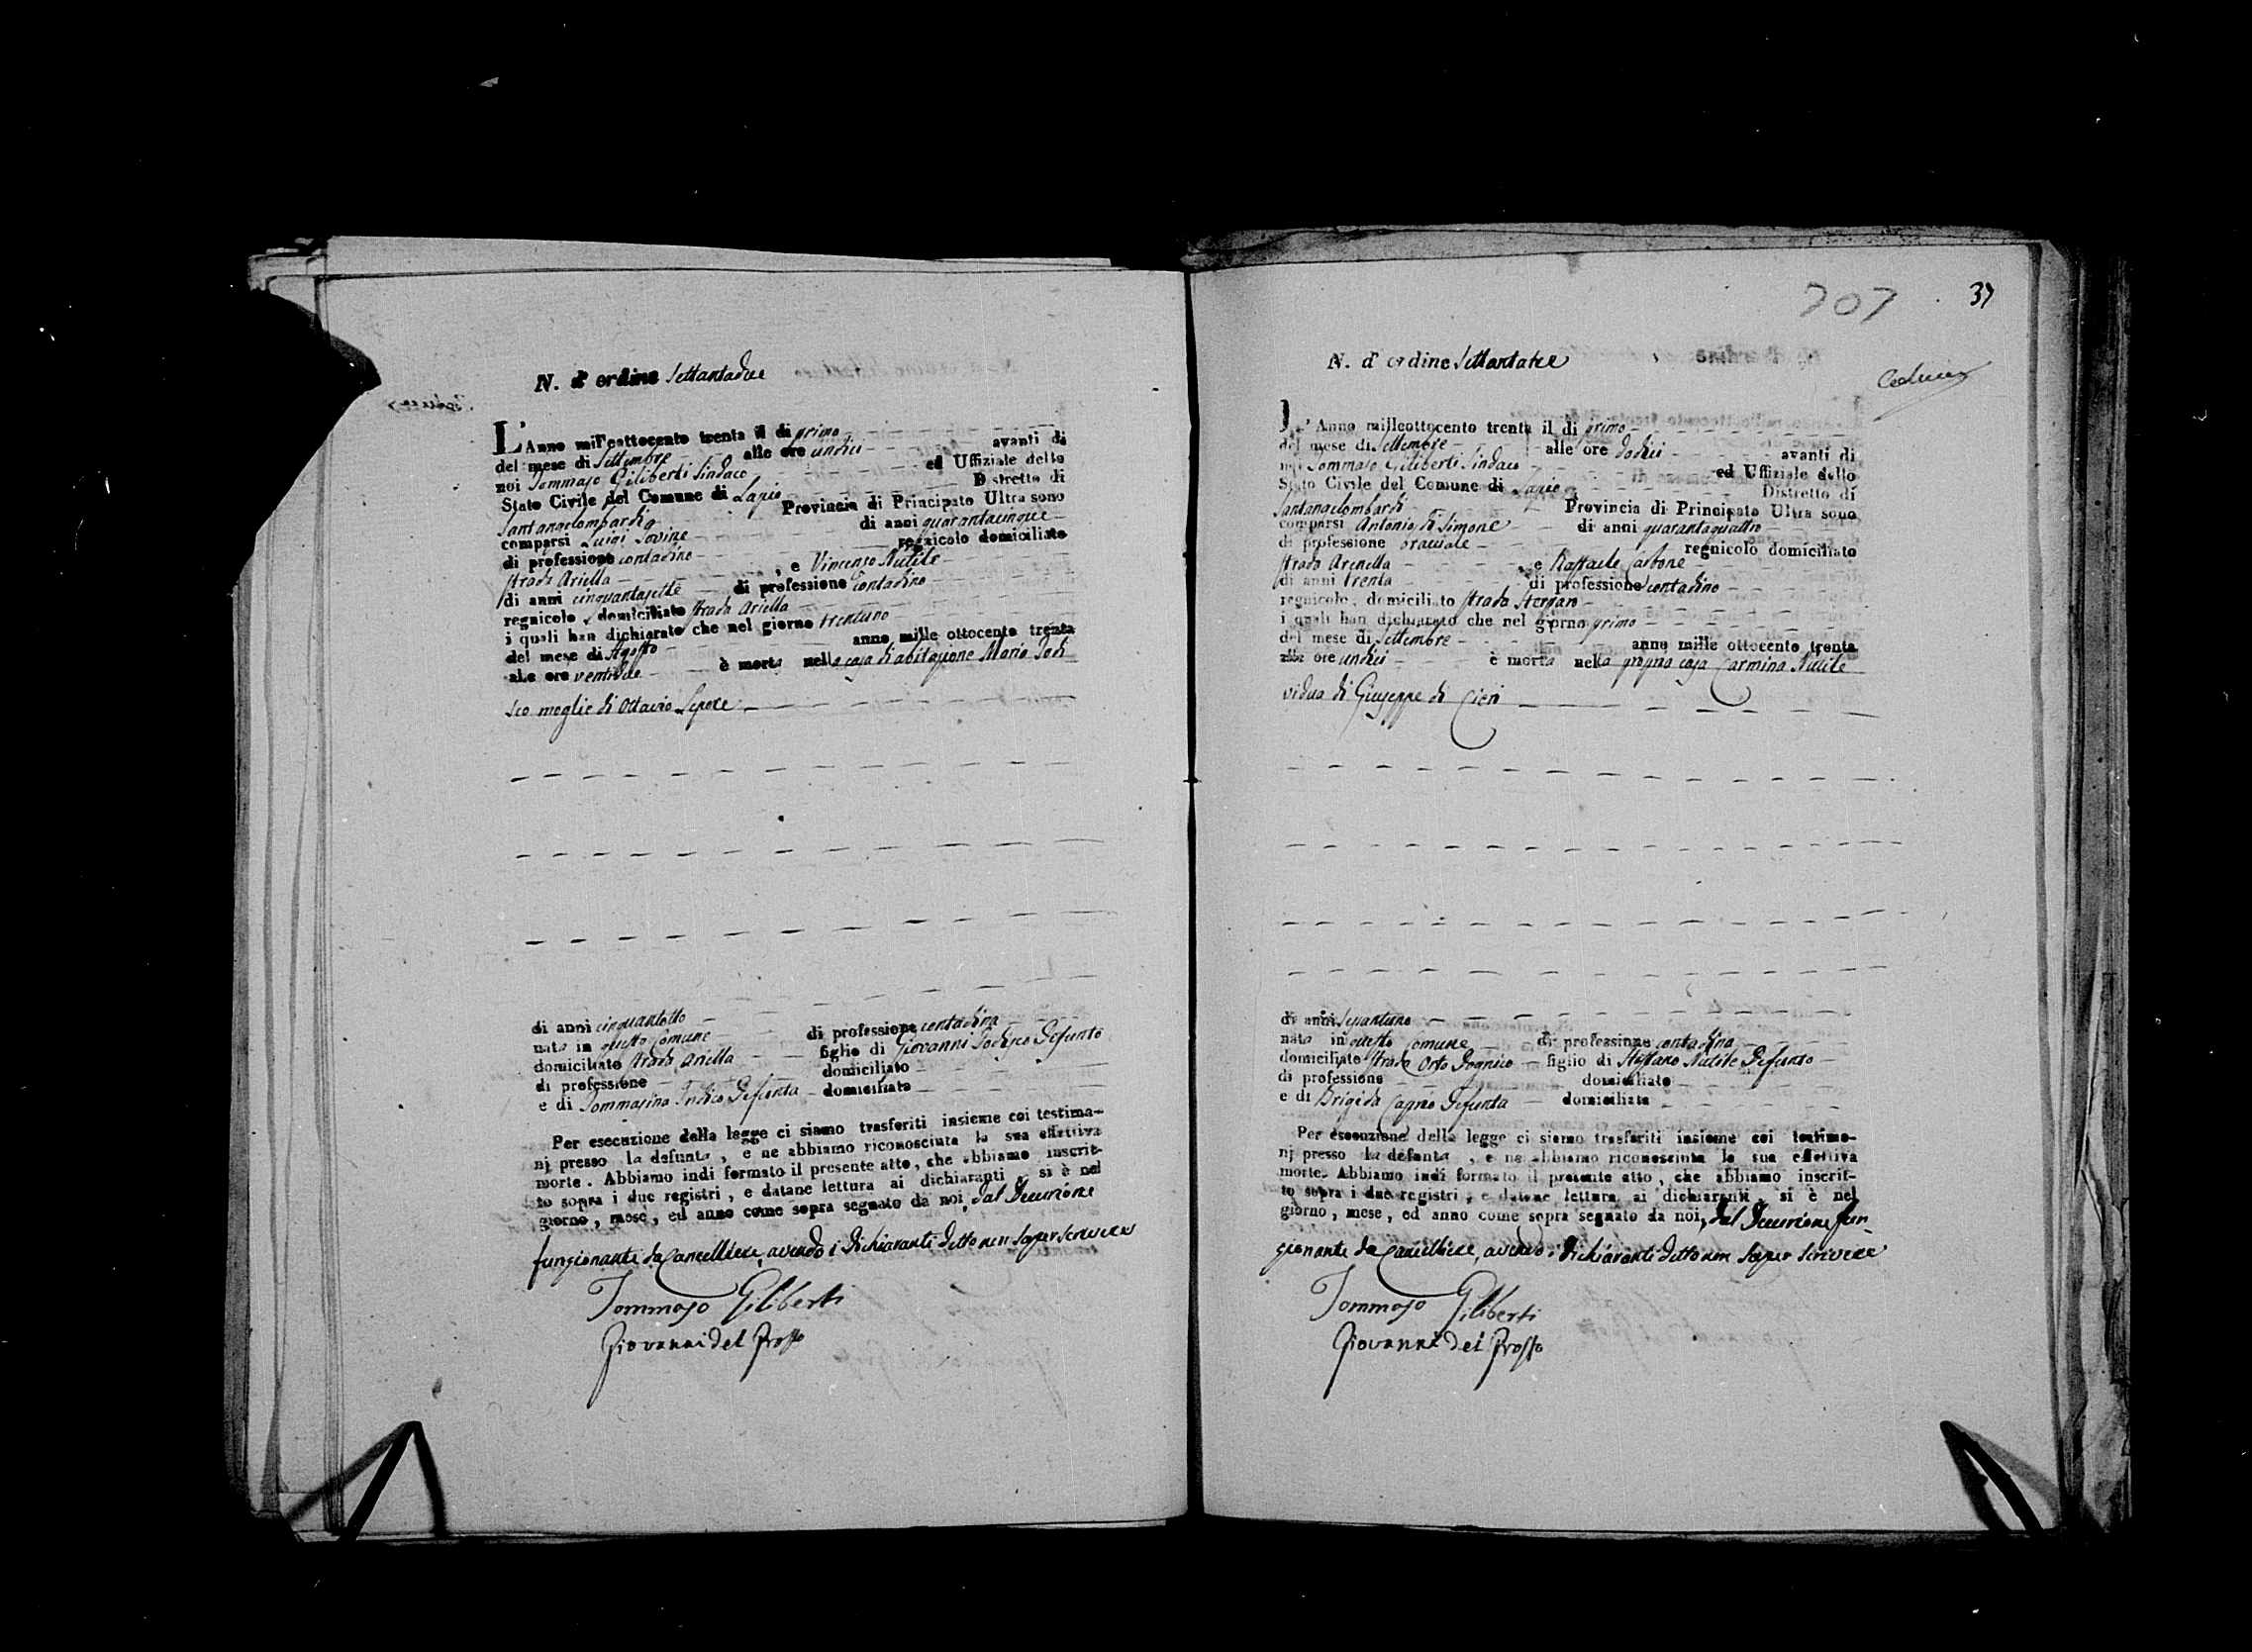 N. d'ordine Settantadue
L'Anno mill'eottocento trenta il di primo
del mese di Settembre alle ore undici avanti di
noi Tommaso Giliberti Sindaco ed Uffiziale dello
Stato Civile del Comune di Lapio Distretto di
Santangelombardi Provincia di Principato Ultra sono
comparsi Luigi Iovine di anni quarantacinque
di professione contadino regnicolo domiciliato
strada Ariella , e Vincenzo Nutile
di anni cinquantasette di professione Contadino
regnicolo , domiciliato strada Ariella
i quali han dichiarato che nel giorno trentuno
del mese di Agosto anno mille ottocento trenta
alle ore ventidue è morta nella casa di abitazione Maria Todi
sco moglie di Ottavio Lepore
di anni cinquantotto di professione contadina
nata in questo Comune figlio di Giovanni Todisco Defunto
domiciliato strada Ariella domiciliato
di professione domiciliato
e di Tommasina Defunta
Per esecuzione della legge ci siamo trasferiti insieme coi testimo-
nj presso la defunta , e ne abbiamo riconosciuta la sua effettiva
morte . Abbiamo indi formato il presente atto , che abbiamo inscrit-
to sopra i due registri , e datane lettura ai dichiaranti , si è nel
giorno , mese , ed anno come sopra segnato da noi, dal Decurione
funzionante da Cancelliere, avendo i Dichiaranti detto non saper scrivere
Tommaso Giliberti
Giovanni del Grosso
707 37
N. d'ordine Settantatre
L'Anno milleottocento trenta il di primo
del mese di Settembre alle ore dodici avanti di
noi Tommaso Giliberti Sindaco ed Uffiziale dello
Stato Civile del Comune di Lapio Distretto di
Santangelombardi Provincia di Principato Ultra sono
comparsi Antonio di Simone di anni quarantaquattro
di professione bracciale regnicolo domiciliato
strada Arenella , e Raffaele Carbone
di anni trenta di professione contadino
regnicolo , domiciliato strada
i quali han dichiarato che nel giorno primo
del mese di Settembre anno mille ottocento trenta
alle ore undici è morta nella propria casa Carmina Nutile
vidua di Giuseppe di Cieri
di anni
nata in questo Comune di professione contadina
domiciliato strada Orto figlio di Steffano Nutile Defunto
di professione domiciliato
e di Brigida Defunta domiciliata
Per esecuzione della legge ci siamo trasferiti insieme coi testimo-
nj presso la defunta , e ne abbiamo riconosciuta la sua effettiva
morte. Abbiamo indi formato il presente atto , che abbiamo inscrit-
to sopra i due registri , e datane lettura ai dichiaranti , si è nel
giorno , mese , ed anno come sopra segnato da noi, dal Decurione fun
zionante da Cancelliere, avendo i Dichiaranti detto non saper scrivere
Tommaso Giliberti
Giovanni del Grosso